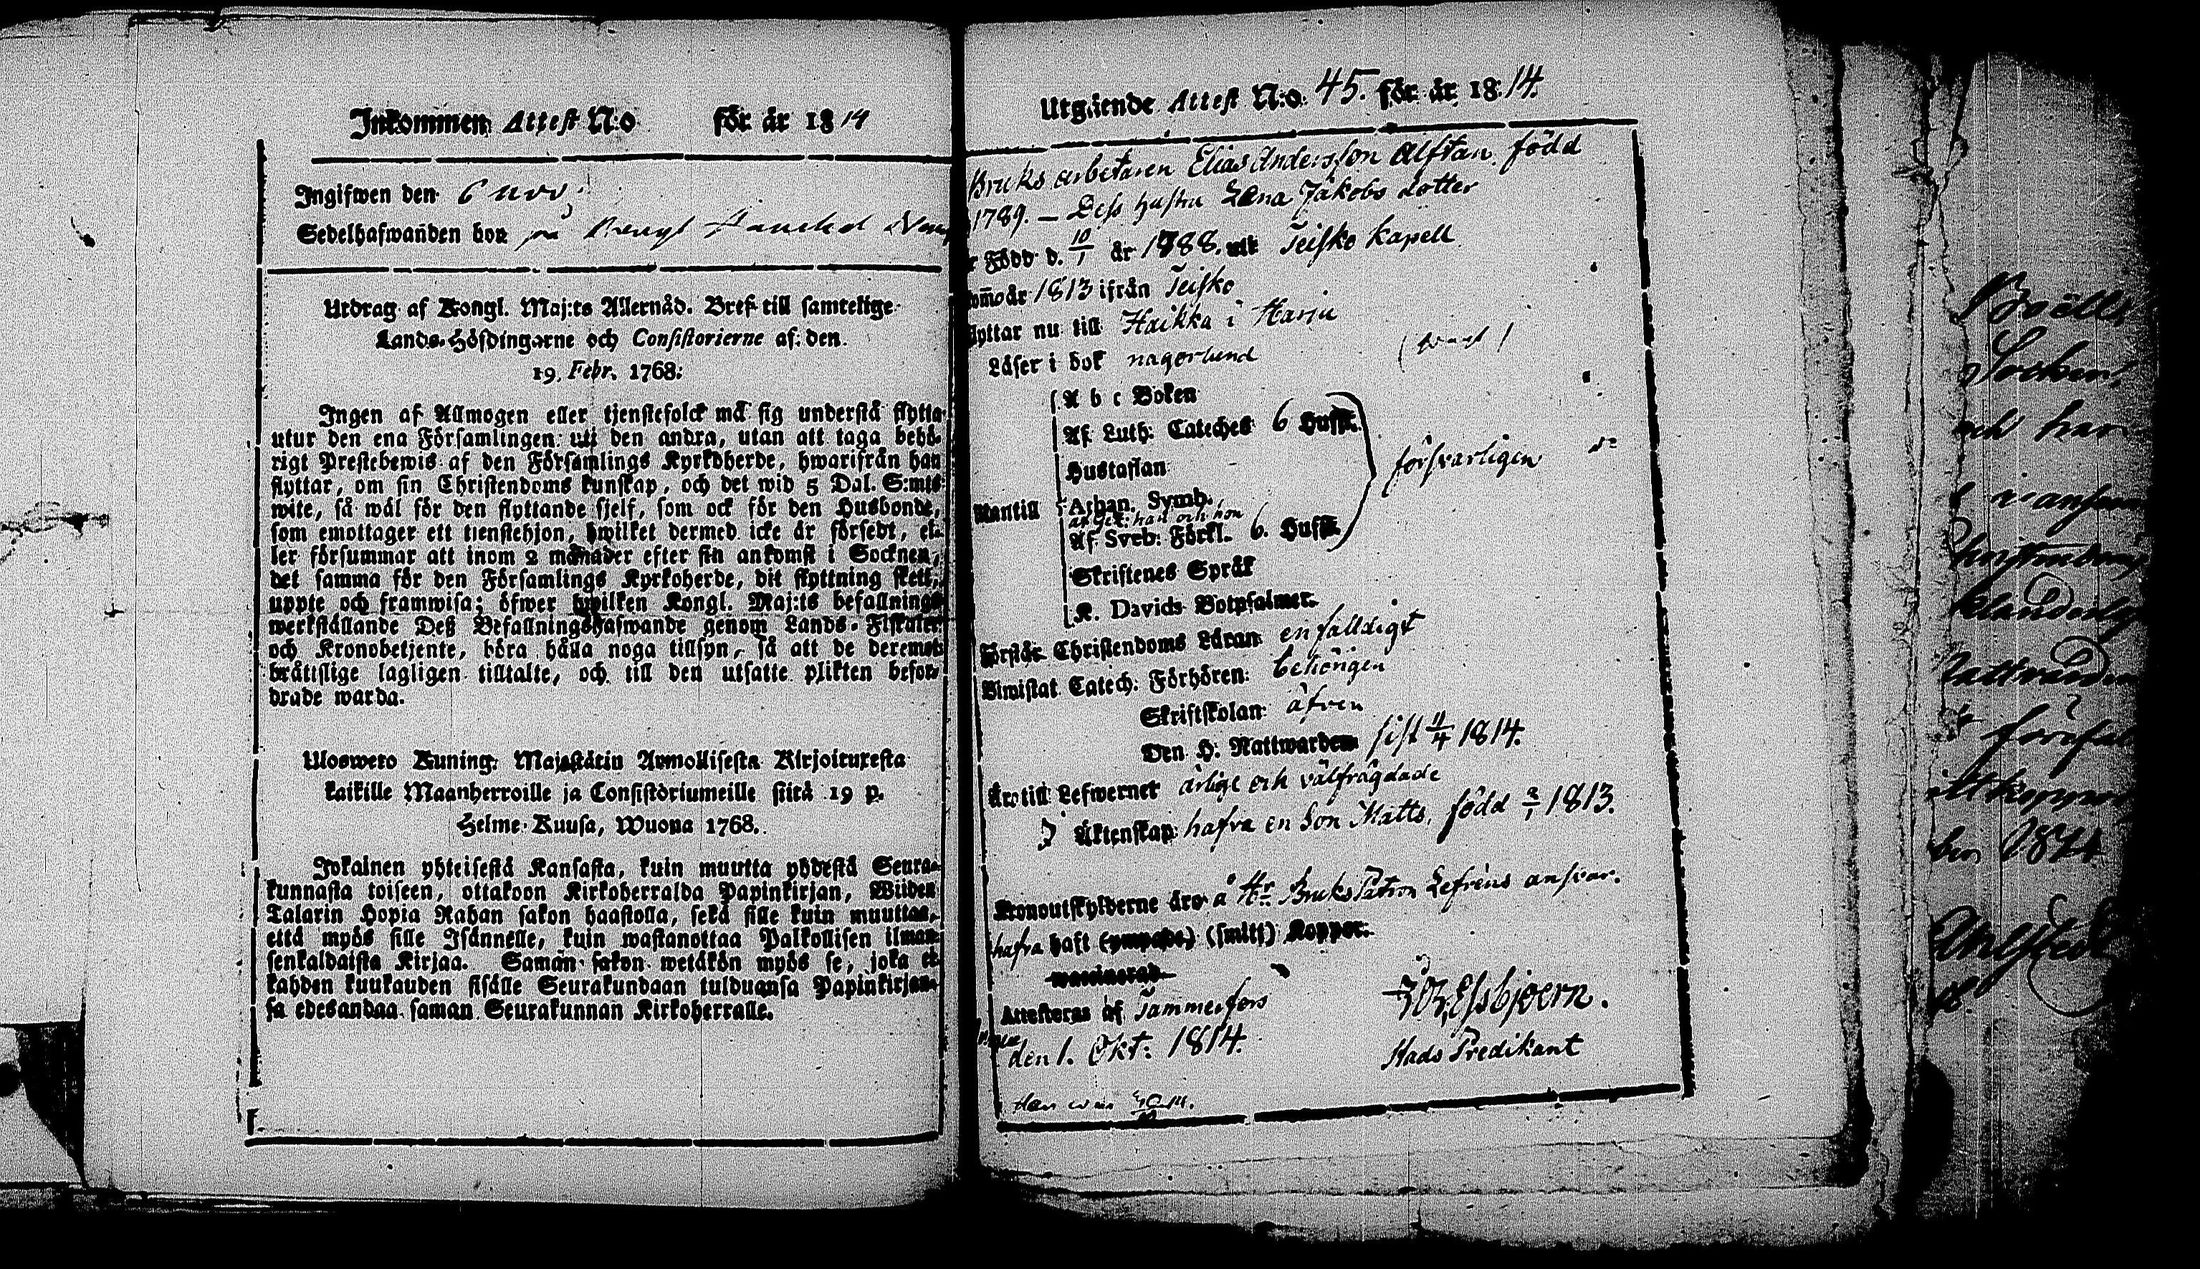 Inkommen Attest N:o för år 1814
Ingifwen den 6 nov.
Sedelhafwanden bor på
Utdrag af Kongl. Maj:ts Allernåd. Bref till samtelige
Lands-Höfdingarne och Consistorierne af den
19. Febr. 1768:
Ingen af Allmogen eller tjenstefolck må sig understå flytta
utur den ena Församlingen uti den andra, utan att taga behö-
rigt Prestebewis af den Församlings Kyrkoherde, hwarifrån han
flyttar, om sin Christendoms kunskap, och det wid 5 Dal. S:mts
wite, så wäl för den flyttande sjelf, som ock för den Husbonde,
som emottager ett tienstehjon, hwilket dermed icke är försedt, el-
ler försummar att inom 2 månader efter sin ankomst i Socknen,
det samma för den Församlings Kyrkoherde, dit flyttning skett,
uppte och framwisa; öfwer hwilken Kongl. Maj:ts befallnings
werkställande Deß Befallningshafwande genom Lands-Fiskaler
och Kronobetjente, böra hålla noga tillsyn, så att de deremot
bråttslige lagligen tilltalte, och till den utsatte plikten befor-
drade warda.
Uloswero Kuning: Majestätin Armollisesta Kirjoituxesta
kaikille Maanherroille ja Consistöriumeille siitä 19 p.
Helme-Kuusa, Wuona 1768.
Jokainen yhteisestä Kansasta, kuin muutta yhdestä Seura-
kunnasta toiseen, ottakoon Kirkoherralda Papinkirjan, Wiiden
Talarin Hopia Rahan sakon haastolla, sekä sille kuin muuttaa,
että myös sille Isännelle, kuin wastanottaa Palkollisen ilman
senkaldaista Kirjaa. Saman sakon wetäkön myös se, joka ei
kahden kuukauden sisälle Seurakundaan tulduansa Papinkirjan-
sa edesandaa saman Seurakunnan Kirkoherralle.
Utgående Attest N:o 45. för år 1814.
Bruks arbetaren Elias Andersson Alftan född
1789. — Dess hustru Lena Jakobs dotter
Född d. 10/1 år 1788. uti Teisko Kapell
år 1813 ifrån Teisko
flyttar nu till Haikka i Harju
Läser i bok någorlund
A b c Boken
Af Luth. Cateches 6 Hufst.
Hustaflan försvarligen
Athan. Symb.
Mantill
Af Sveb: Förkl. 6. Hufst.
Skriftenes Språk
K. Davids Botpsalmer.
Förstår Christendoms Läran enfalldigt
Biwistat Catech: Förhören: behörigen
Skriftskolan: äfven
Den H: Nattwarden sist 11/4 1814.
Äro till Lefwernet ärlige och välfrägdade
Äktenskap: hafva en Son Matts, född 2/1 1813.
Kronoutskylderne äro å Hr Bruks Patron Lefréns ansvar.
hafva haft (ympade) (smitt) Koppor.
waccinerad
Attesteras af Tammerfors
den 1. Okt: 1814.
Essbjoern.
Stads Predikant